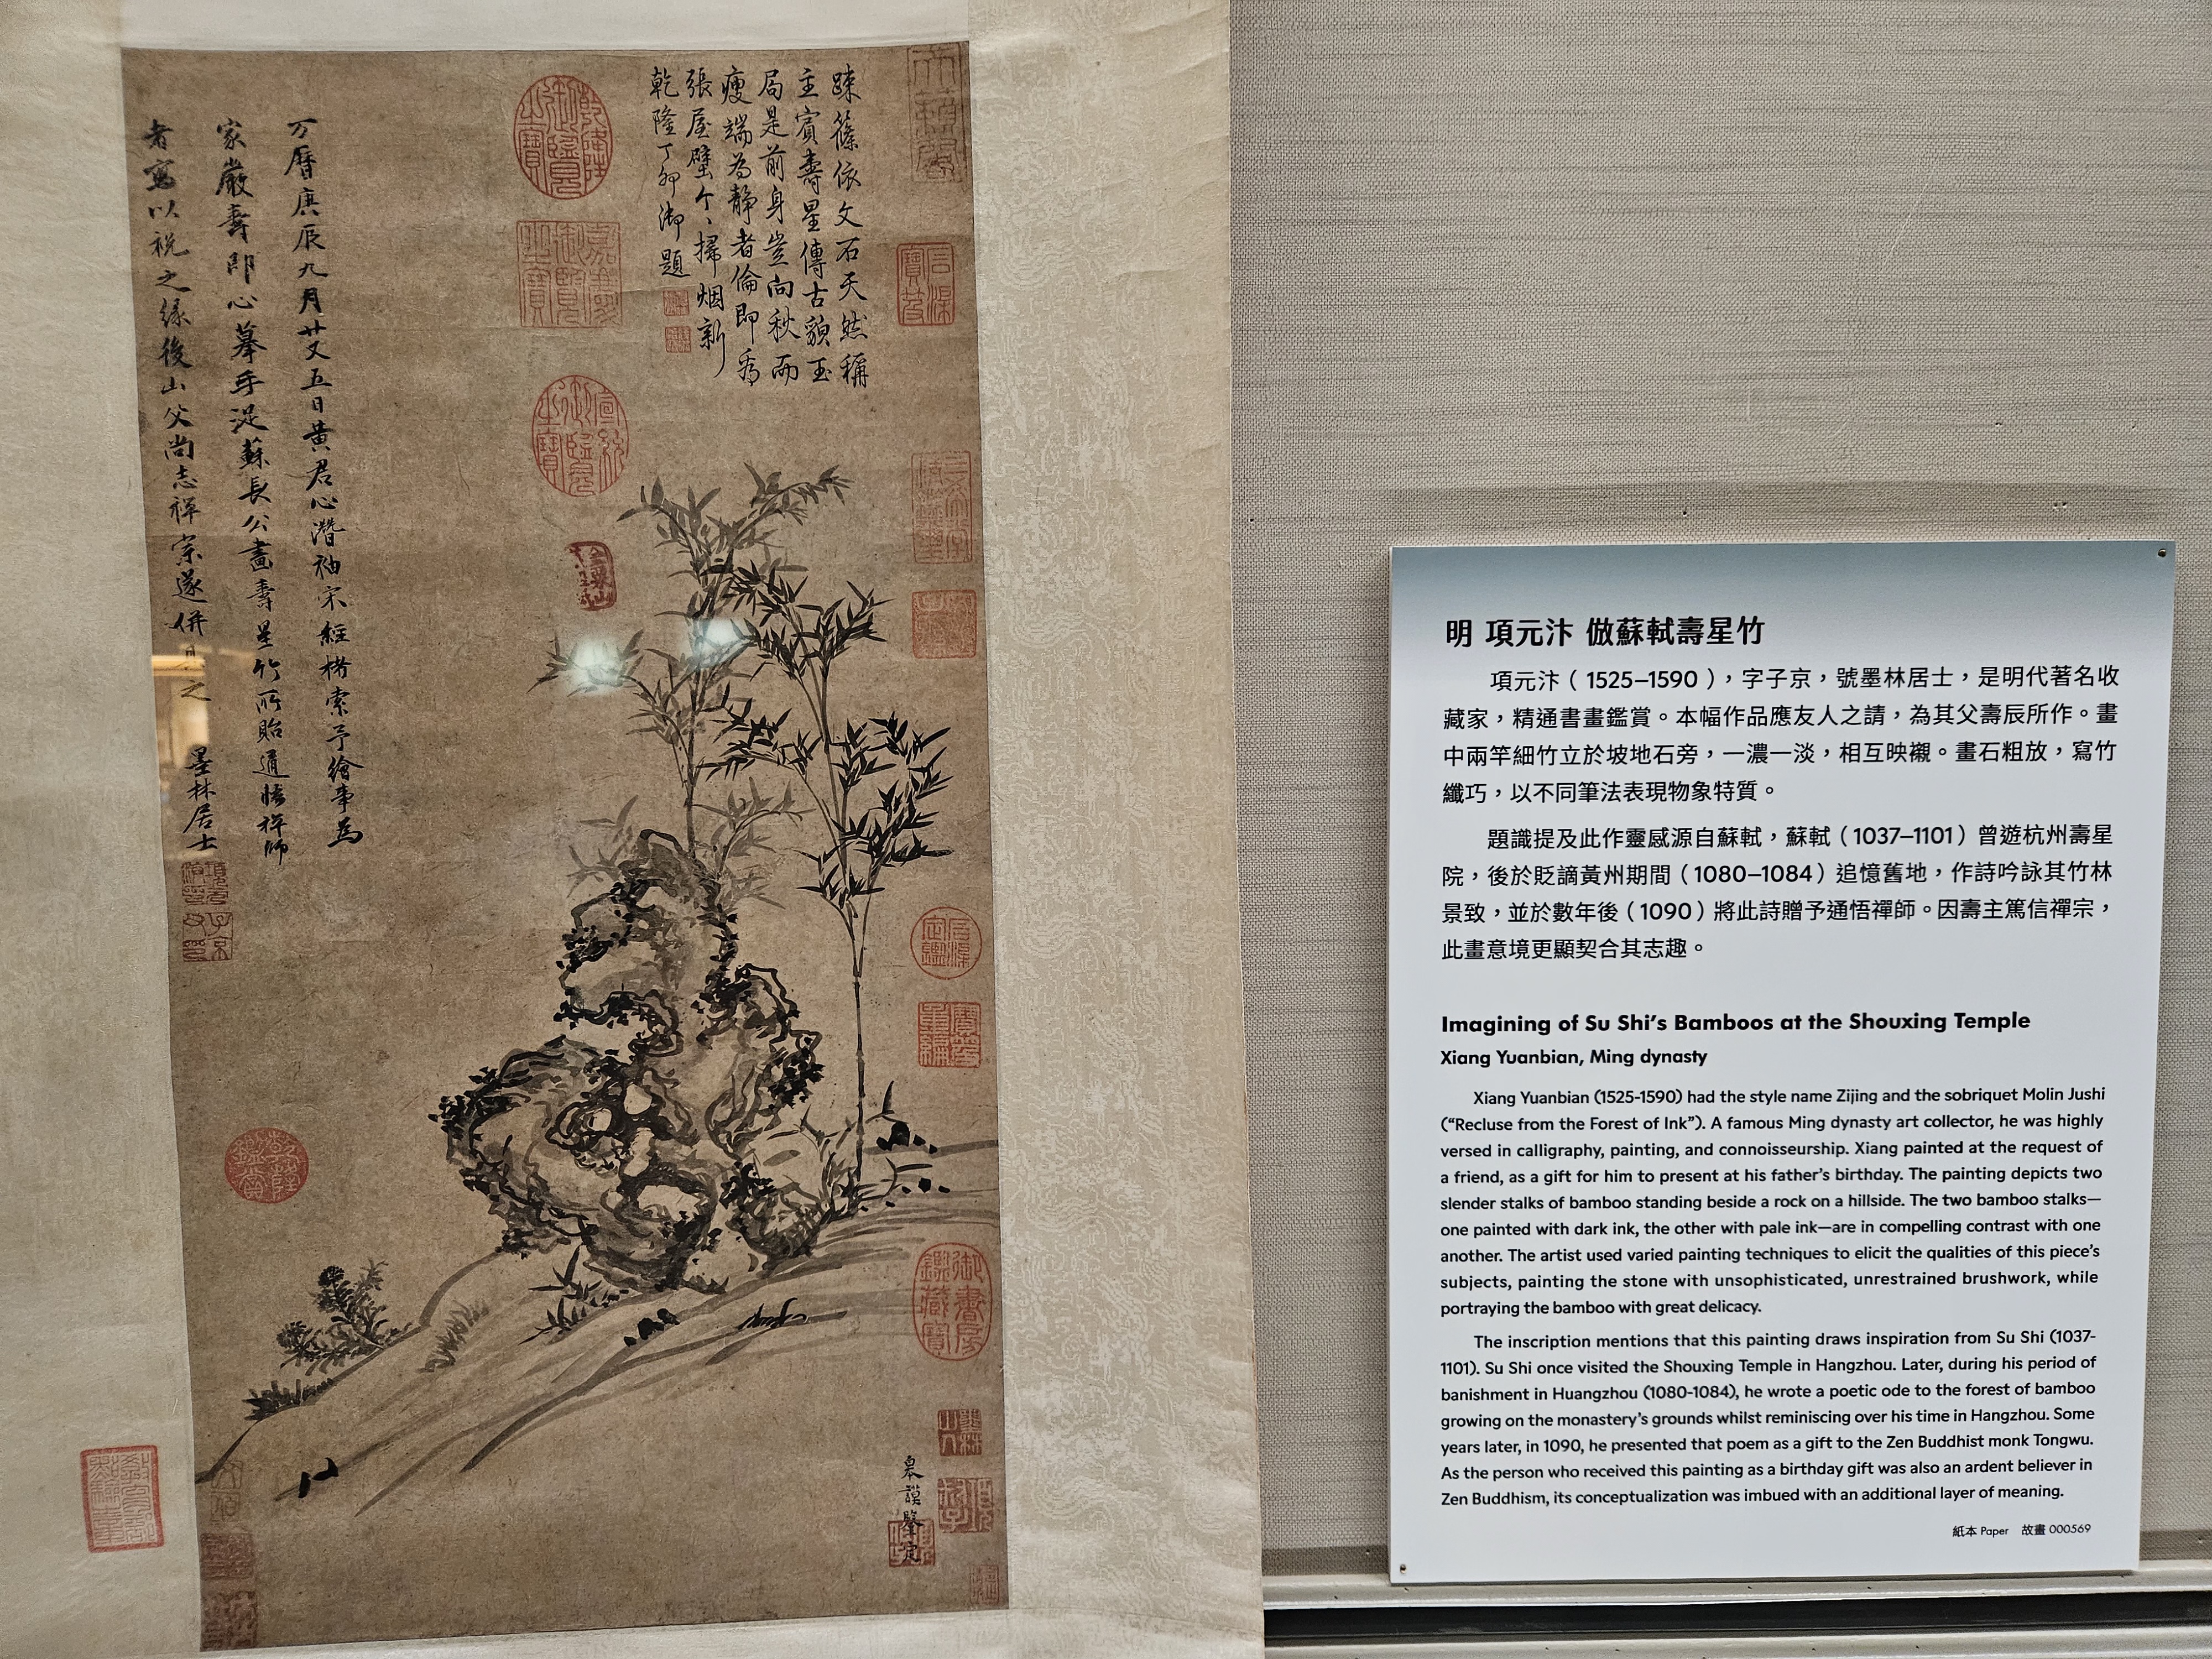 疎篠依文石天然稱
主賓壽星傳古貌玉
局是前身豈向秋而
瘦端為靜者倫即看
張屋壁个、掃烟新
乾隆丁卯御題
乾隆御覽之寶
嘉慶御覽之寶
宣統御覽之寶
石渠寶笈
三希堂精鑑璽
宜子孫
石渠定鑑
寶笈重編
御書房鑑藏寶
皋謨鑒定
万曆庚辰九月廿又五日黄君心濳袖宋經楮索予繪事為
家嚴壽即心摹手追蘇長公畫壽星竹所貽通悟禅師
者寫以祝之緣後山父尚志禅宗遂併 之 墨林居士
乾隆鑑賞
明 項元汴 倣蘇軾壽星竹
項元汴（1525–1590），字子京，號墨林居士，是明代著名收
藏家，精通書畫鑑賞。本幅作品應友人之請，為其父壽辰所作。畫
中兩竿細竹立於坡地石旁，一濃一淡，相互映襯。畫石粗放，寫竹
纖巧，以不同筆法表現物象特質。
題識提及此作靈感源自蘇軾，蘇軾（1037–1101）曾遊杭州壽星
院，後於貶謫黃州期間（1080–1084）追憶舊地，作詩吟詠其竹林
景致，並於數年後（1090）將此詩贈予通悟禪師。因壽主篤信禪宗，
此畫意境更顯契合其志趣。
Imagining of Su Shi's Bamboos at the Shouxing Temple
Xiang Yuanbian, Ming dynasty
Xiang Yuanbian (1525-1590) had the style name Zijing and the sobriquet Molin Jushi
("Recluse from the Forest of Ink"). A famous Ming dynasty art collector, he was highly
versed in calligraphy, painting, and connoisseurship. Xiang painted at the request of
a friend, as a gift for him to present at his father's birthday. The painting depicts two
slender stalks of bamboo standing beside a rock on a hillside. The two bamboo stalks—
one painted with dark ink, the other with pale ink—are in compelling contrast with one
another. The artist used varied painting techniques to elicit the qualities of this piece's
subjects, painting the stone with unsophisticated, unrestrained brushwork, while
portraying the bamboo with great delicacy.
The inscription mentions that this painting draws inspiration from Su Shi (1037-
1101). Su Shi once visited the Shouxing Temple in Hangzhou. Later, during his period of
banishment in Huangzhou (1080-1084), he wrote a poetic ode to the forest of bamboo
growing on the monastery's grounds whilst reminiscing over his time in Hangzhou. Some
years later, in 1090, he presented that poem as a gift to the Zen Buddhist monk Tongwu.
As the person who received this painting as a birthday gift was also an ardent believer in
Zen Buddhism, its conceptualization was imbued with an additional layer of meaning.
紙本 Paper 故畫 000569